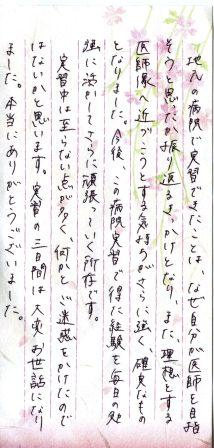 地元の病院で実習できたことは、なぜ自分が医師を目指
そうと思ったか振り返るきっかけとなり、また、理想とする
医師像へ近づこうとする気持ちがさらに強く、確かなもの
となりました。今後、この病院実習で得た経験を毎日の勉
強に活かしてさらに頑張っていく所存です。
実習中は至らない点が多く、何かとご迷惑をかけたので
はないかと思います。実習の三日間は大変お世話になり
ました。本当にありがとうございました。